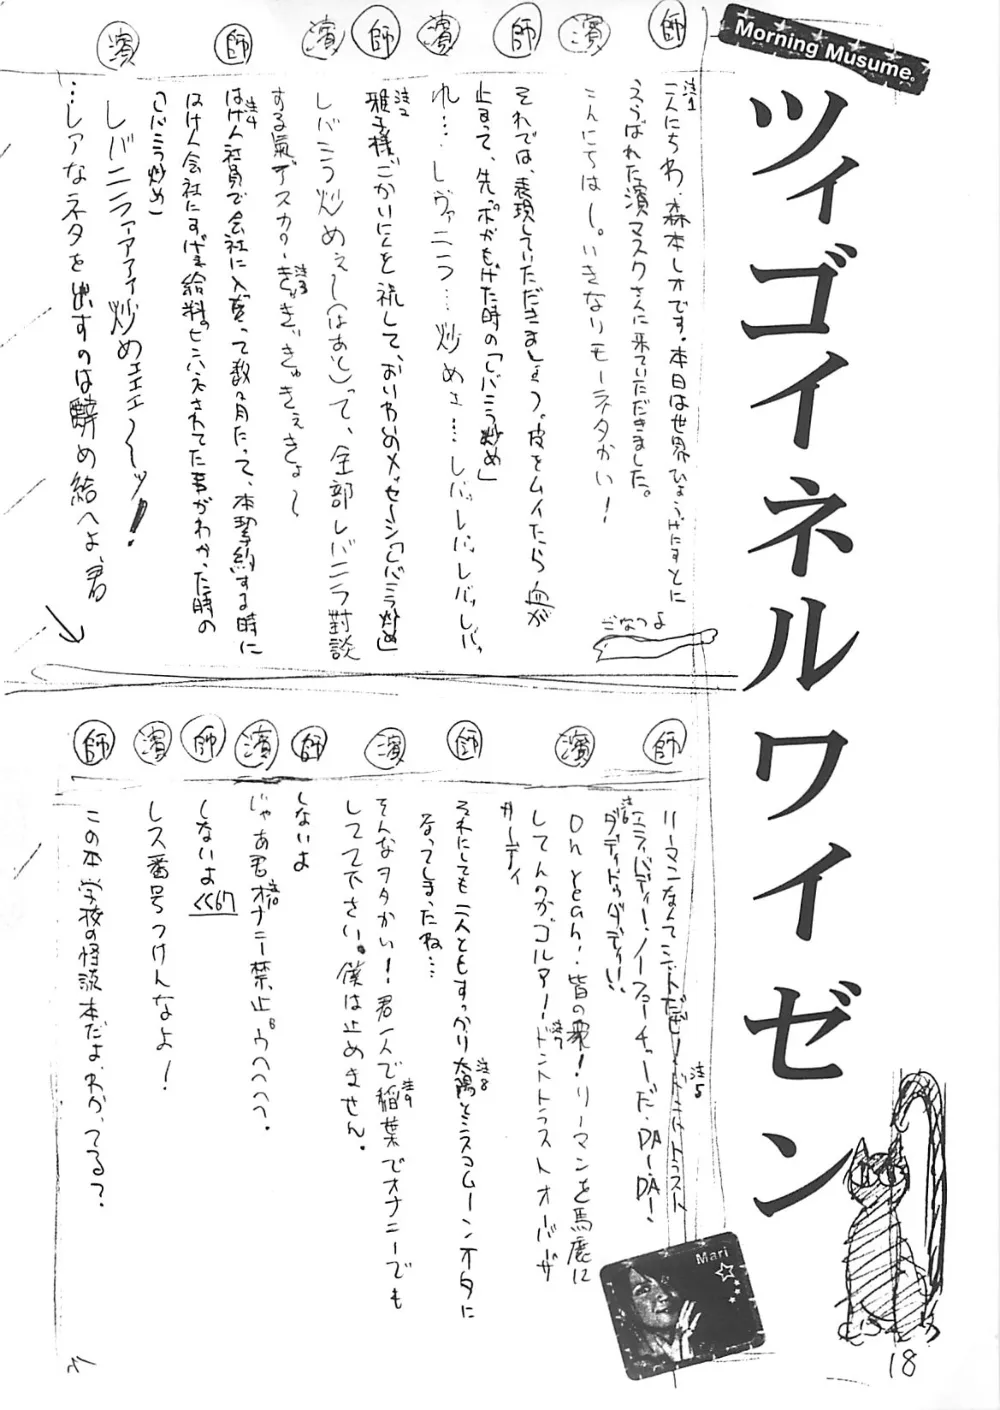 Morning Musume。
ツィゴイネルワイゼン
師
注1
こんにちわ、森本レオです。本日は世界ひょうげにすとに
えらばれた濱マスクさんに来ていただきました。
濱
こんにちはー。いきなりモーネタかい!
師
それでは、表現していただきましょう。皮をムイたら血が
止まって、先っポがもげた時の「レバニラ炒め」
濱
れ…レヴァニラ…炒めぇ…レバッレバッレバッレバッ
師
注2
雅子様ごかいにんを祝して、おいわいのメッセージ「レバニラ炒め」
濱
レバニラ炒めぇ〜(はあと)って、全部レバニラ對談
する氣デスカ
注3
師
注4
はけん社員で会社に入って数ヶ月たって、本契約する時に
はけん会社にすげえ給料のピンハネされてた事がわかった時の
「レバニラ炒め」
濱
レバニラァアアア炒めェェェ〜〜ッ!
…レアなネタを出すのは辭め給へよ、君
ごなつよ
師
リーマンなんて
注5
注6
ノーフューチャーだ、DA-DA!
濱
Oh yeah!皆の衆!リーマンを馬鹿に
してんのかゴルアー!ドントトラストオーバーサ
ーティ
注7
師
それにしても二人ともすっかり太陽とシスコムーンオタに
なってしまったね…
注8
濱
そんなヲタかい!君一人で稲葉でオナニーでも
してて下さい。僕は止めません。
注9
師
しないよ
濱
じゃあ君オナニー禁止
注10
師
しないよ
<<67
濱
レス番号つけんなよ!
師
この本学校の怪談本だよ、わかってる?
Mari
18